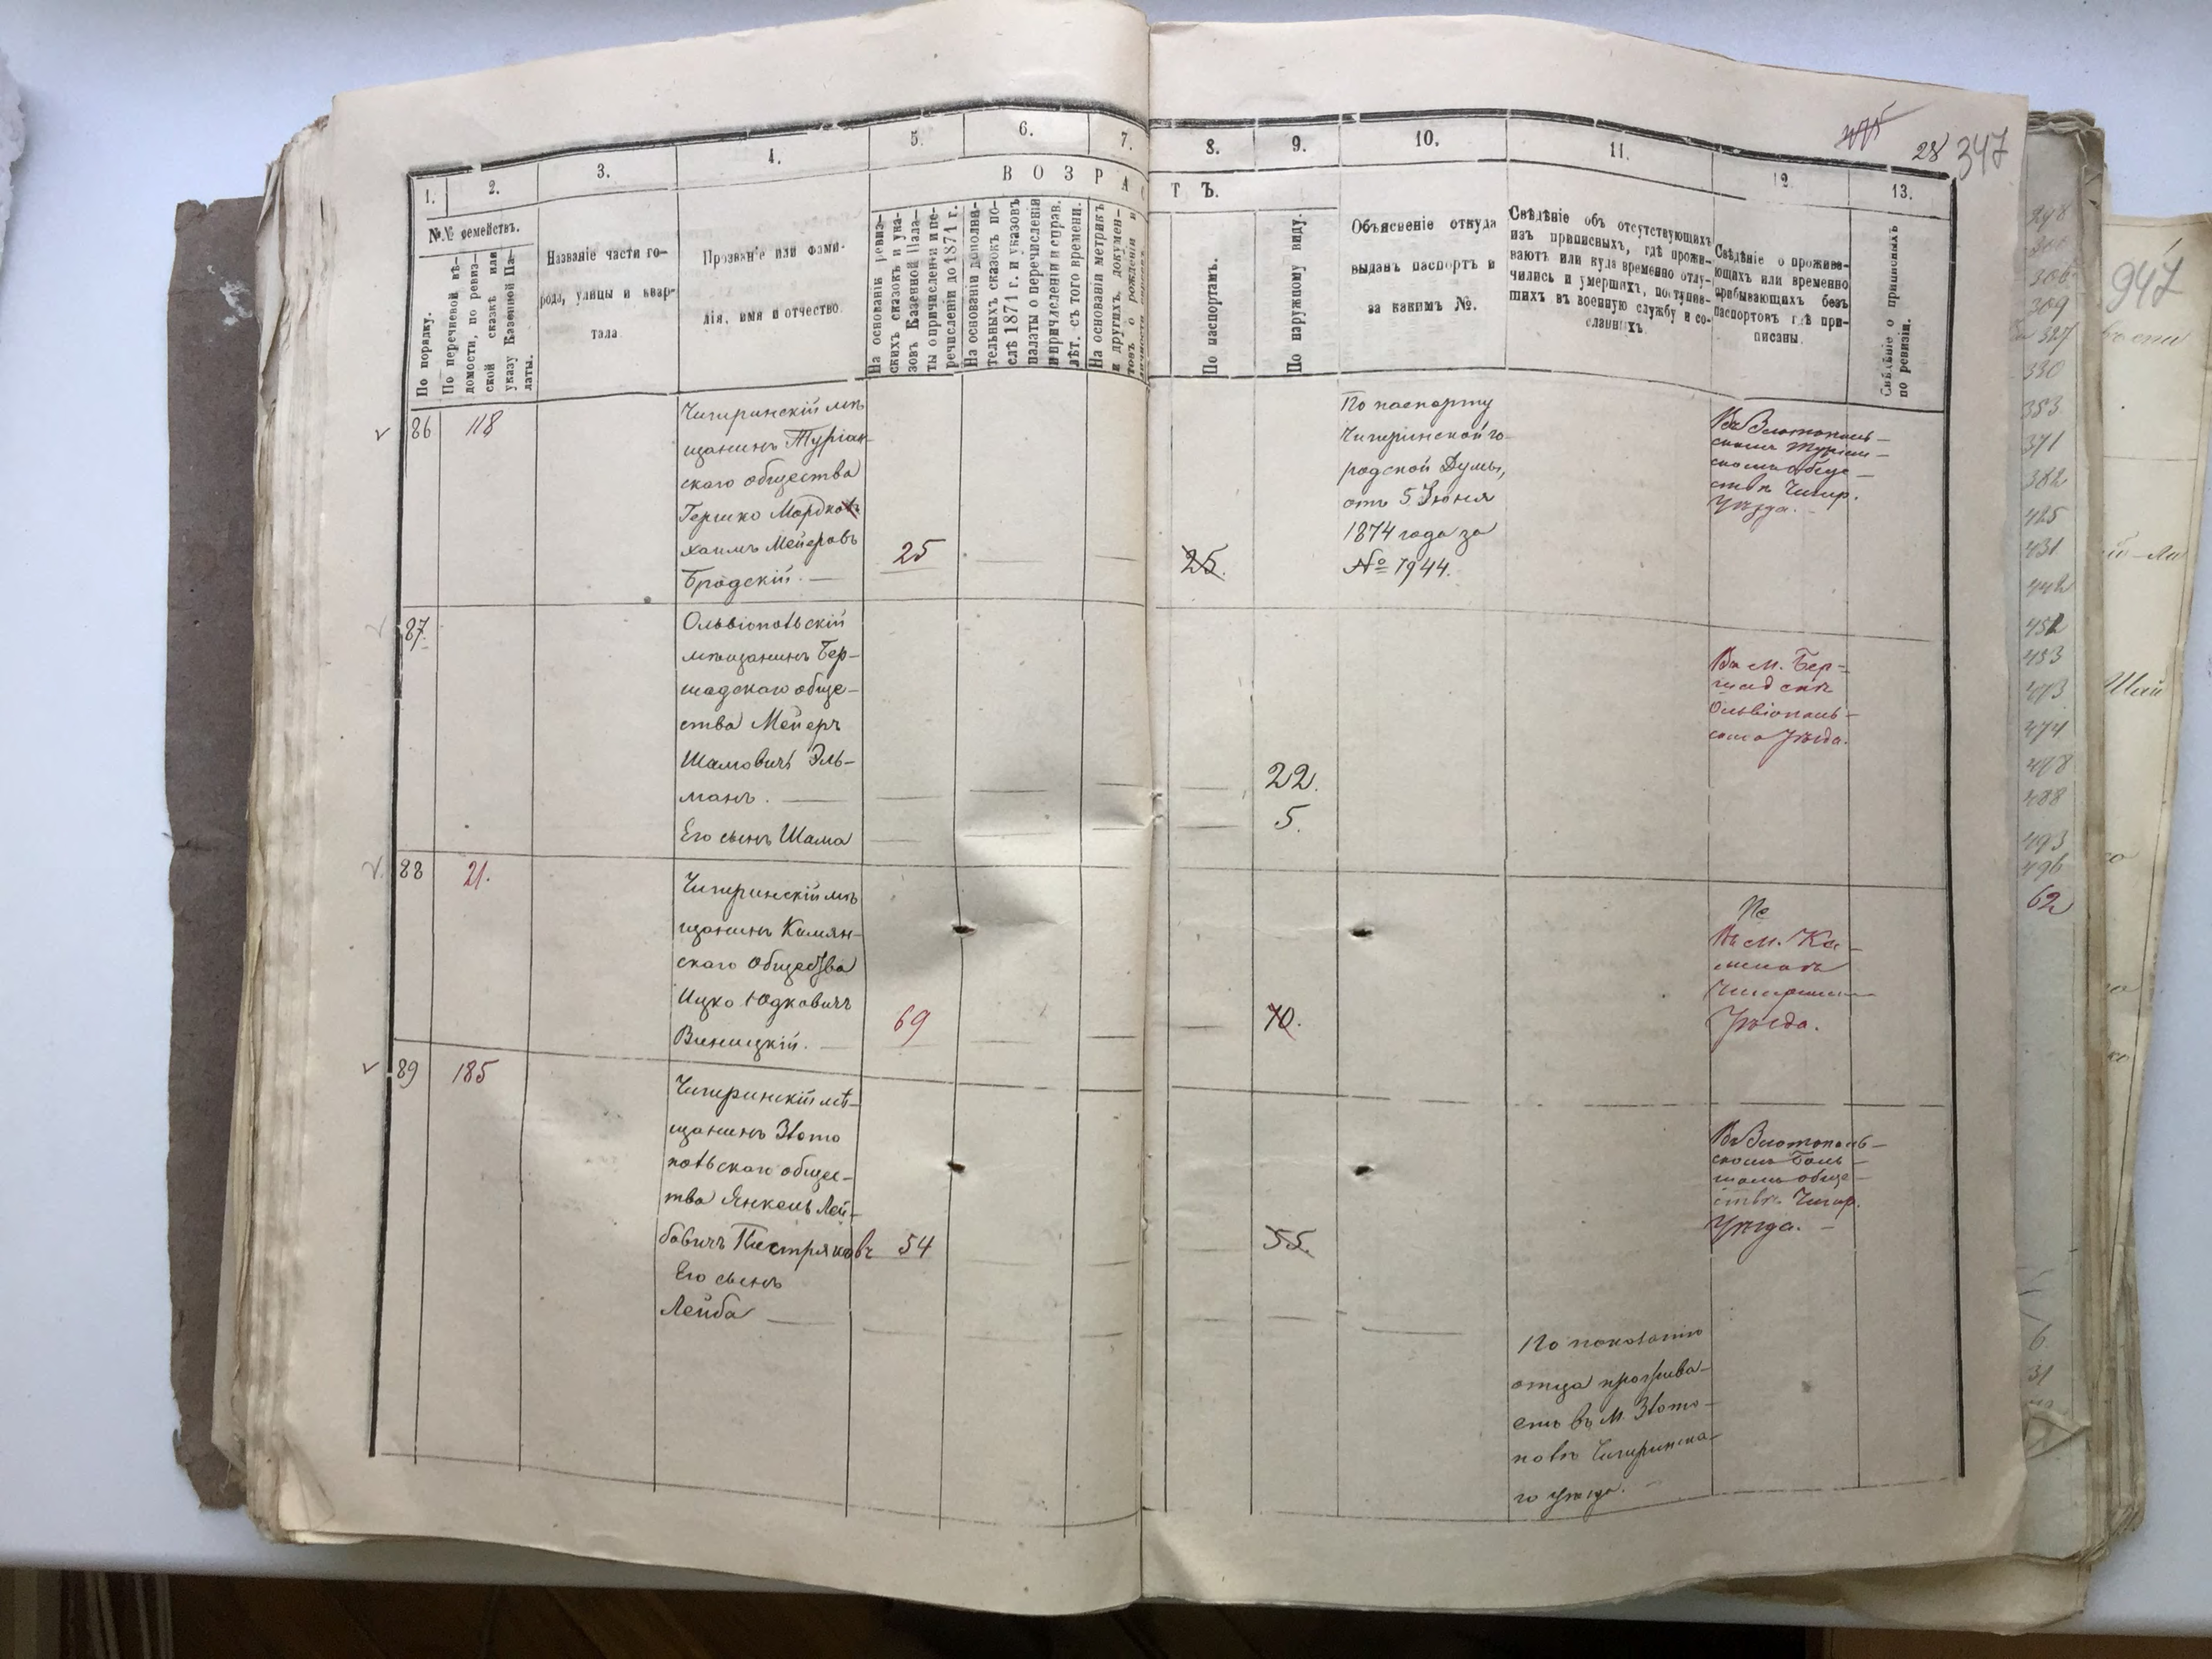 475
28 347
1. 2. 3. 4. 5. 6. 7. 8. 9. 10. 11. 12. 13.
№№ семействъ.
По порядку.
По перечневой вѣ-
домости, по ревиз-
ской сказкѣ или
указу Казенной Па-
латы.
Названіе части го-
рода, улицы и квар-
тала
Прозваніе или фами-
лія, имя и отчество.
ВОЗРАСТЪ.
На основаніи ревиз-
скихъ сказокъ и ука-
зовъ Казенной Пала-
ты о причисленіи и пе-
речисленіи до 1871 г.
На основаніи дополни-
тельныхъ сказокъ по-
слѣ 1871 г. и указовъ
палаты о перечисленіи
и причисленіи и справ.
лѣт. съ того времени.
На основаніи метрикъ
и другихъ докумен-
товъ о рожденіи и
По паспортамъ.
По наружному виду.
Объясненіе откуда
выданъ паспортъ и
за какимъ №.
Свѣдѣніе объ отсутствующихъ
изъ приписныхъ, гдѣ прожи-
ваютъ или куда временно отлу-
чились и умершихъ, поступив-
шихъ въ военную службу и со-
сланныхъ.
Свѣдѣніе о прожива-
ющихъ или временно
прибывающихъ безъ
паспортовъ гдѣ при-
писаны.
Свѣдѣніе о приписныхъ
по ревизіи.
86 118
Чигиринскій мѣ
щанинъ Туріан-
скаго общества
Гершко Мордко
хаимъ Мейеровъ
Бродскій. —
25
25.
По паспорту
Чигиринской го-
родской Думы,
отъ 5 Іюня
1874 года за
№ 1944.
Въ Златополь-
скомъ Туріан-
скомъ обще-
ствѣ Чигир.
Уѣзда. —
87.
Ольвіопольскій
мѣщанинъ Бер-
шадскаго обще-
ства Мейеръ
Шамовичъ Эль-
манъ. —
Его сынъ Шама
22.
5.
Въ м. Бер-
шадскѣ
Ольвіополь-
скаго Уѣзда.
88 21.
Чигиринскій мѣ
щанинъ Камян-
скаго Общества
Ицко Юдковичъ
Виницкій. —
69
70.
Въ м. Ка-
менкѣ
Чигирин
Уѣзда.
89 185
Чигиринскій мѣ-
щанинъ Злато
польскаго общес-
тва Янкель Лей-
бовичъ Пестряковъ
54
55.
Его сынъ
Лейба —
Въ Златополь-
скомъ Боль-
шомъ обще-
ствѣ Чигир.
Уѣзда. —
По показанію
отца прожива-
етъ въ м. Злато-
полѣ Чигиринска-
го уѣзда. —
298
306
309
327
330
353
371
382
425
431
442
452
453
473
474
478
488
493
496
62
6
31
947
Шай